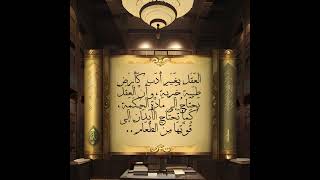 العَقل بِغَير أدَب كَأرض
طَيبة خَربة ، وإن العَقل
يَحتَاج إلى مَادة الحِكمة ،
كَما تَحتاج الأبدَان إلى
قُوتهَا مِن الطعَام ..